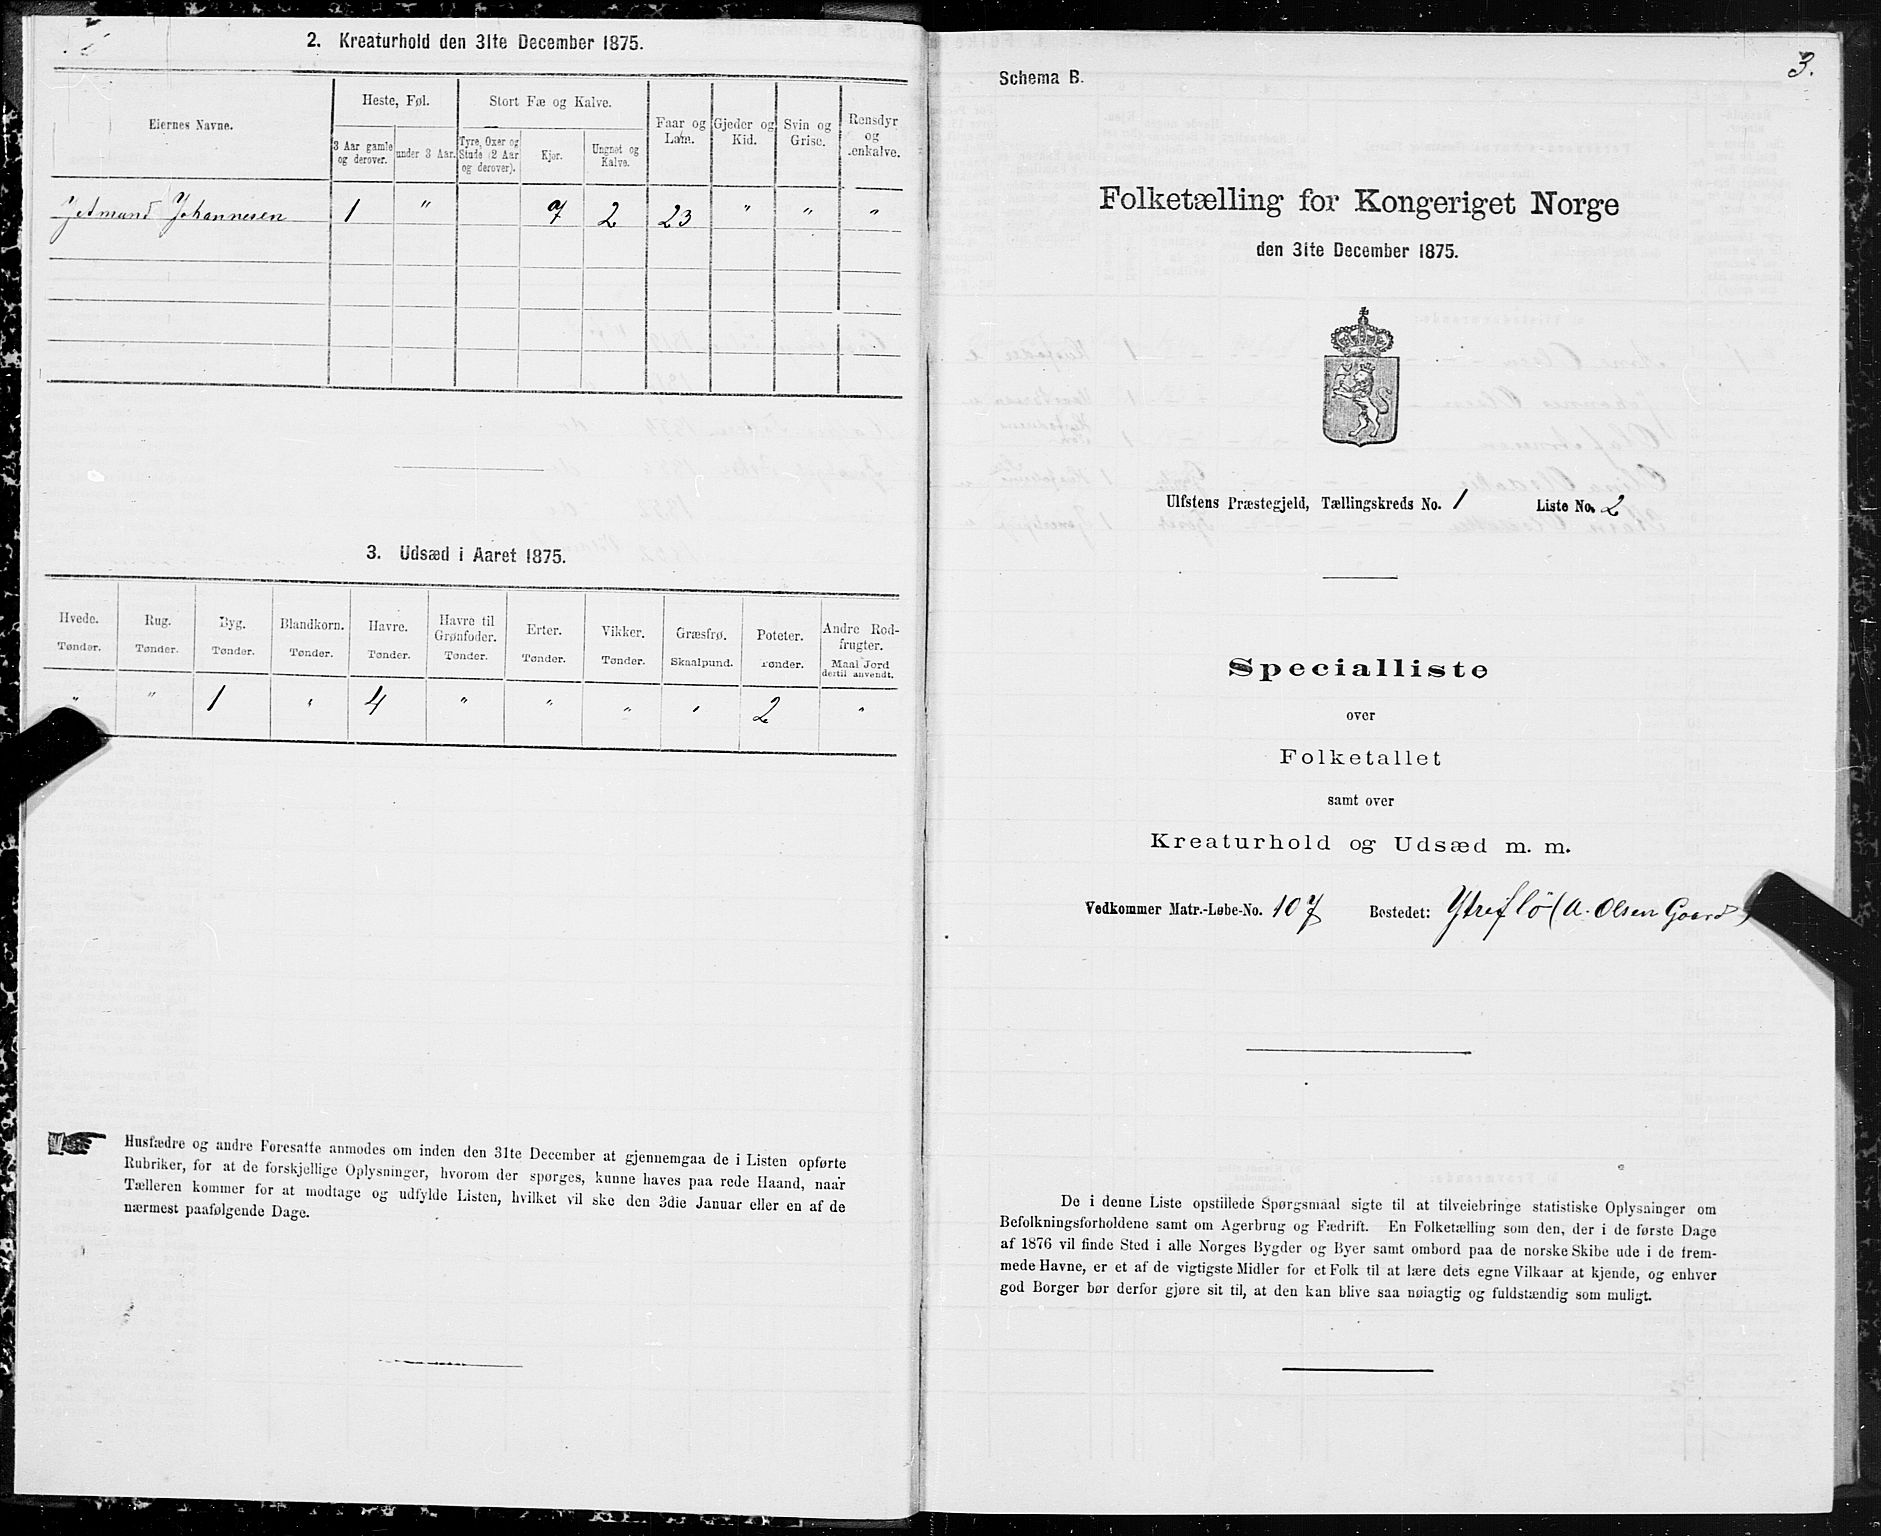 2. Kreaturhold den 31te December 1875.
Eiernes Navne.
Heste, Føl.
Stort Fæ og Kalve.
Faar og Lam.
Gjeder og Kid.
Svin og Grise.
Rensdyr og
enkalve.
3 Aar gamle og derover.
under 3 Aar.
Tyre, Oxer og Stude (2 Aar og derover).
Kjør.
Ungnøt og Kalve.
Johannesen 1 " 7 2 23 " " "
3. Udsæd i Aaret 1875.
Hvede. Rug. Byg. Blandkorn. Havre. Havre til Grønfoder. Erter. Vikker. Græsfrø. Poteter. Andre Rodfrugter.
Tønder. Tønder. Tønder. Tønder. Tønder. Tønder. Tønder. Tønder. Skaalpund. Tønder. Maal Jord dertil anvendt.
" " 1 " 4 " " " " 2 "
Husfædre og andre Foresatte anmodes om inden den 31te December at gjennemgaa de i Listen opførte
Rubriker, for at de forskjellige Oplysninger, hvorom der spørges, kunne haves paa rede Haand, naar
Tælleren kommer for at modtage og udfylde Listen, hvilket vil ske den 3die Januar eller en af de
nærmest paafølgende Dage.
3.
Schema B.
Folketælling for Kongeriget Norge
den 31te December 1875.
Ulfstens Præstegjeld, Tællingskreds No. 1 Liste No. 2
Specialliste
over
Folketallet
samt over
Kreaturhold og Udsæd m. m.
Vedkommer Matr.-Løbe-No. 107 Bostedet: Ytreflö (A. Olsen Gaard)
De i denne Liste opstillede Spørgsmaal sigte til at tilveiebringe statistiske Oplysninger om
Befolkningsforholdene samt om Agerbrug og Fædrift. En Folketælling som den, der i de første Dage
af 1876 vil finde Sted i alle Norges Bygder og Byer samt ombord paa de norske Skibe ude i de frem-
mede Havne, er et af de vigtigste Midler for et Folk til at lære dets egne Vilkaar at kjende, og enhver
god Borger bør derfor gjøre sit til, at den kan blive saa nøiagtig og fuldstændig som muligt.